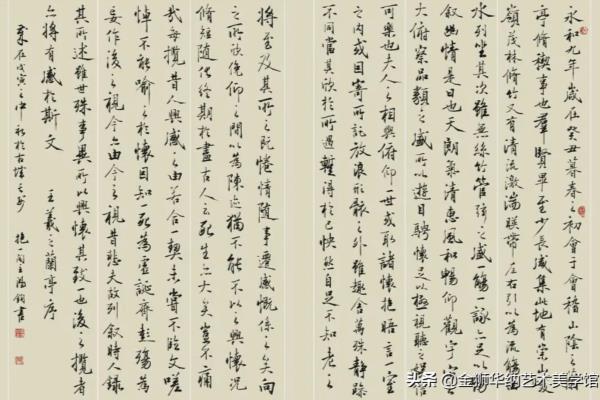 永和九年歲在癸丑暮春之初會于會稽山陰之蘭
亭脩禊事也羣賢畢至少長咸集此地有崇山峻
嶺茂林脩竹又有清流激湍暎帶左右引以為流觴曲
水列坐其次雖無絲竹管弦之盛一觴一詠亦足以暢
叙幽情是日也天朗氣清惠風和暢仰觀宇宙之
大俯察品類之盛所以遊目騁懷足以極視聽之娛信
可樂也夫人之相與俯仰一世或取諸懷抱晤言一室
之內或因寄所託放浪形骸之外雖趣舍萬殊静躁
不同當其欣於所遇暫得於己怏然自足不知老之
將至及其所之既惓情隨事遷感慨係之矣向
之所欣俛仰之間以為陳迹猶不能不以之興懷況
脩短隨化終期於盡古人云死生亦大矣豈不痛
哉每攬昔人興感之由若合一契未嘗不臨文嗟
悼不能喻之於懷固知一死為虛誕齊彭殤為
妄作後之視今亦由今之視昔悲夫故列叙時人錄
其所述雖世殊事異所以興懷其致一也後之攬者
亦將有感於斯文 王羲之蘭亭序
歲在戊寅之中秋於古城
書
头条 @金狮华纳艺术美学馆